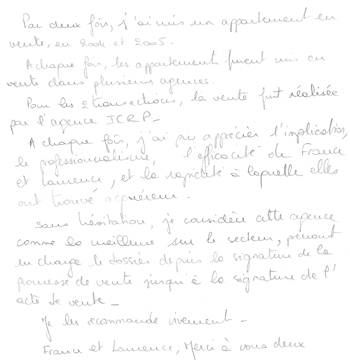 Par deux fois, j'ai mis un appartement en
vente, en 2004 et 2005.
A chaque fois, les appartement furent mis en
vente dans plusieurs agences.
Pour les 2 transactions, la vente fut réalisée
par l'agence JCRP.
A chaque fois, j'ai pu apprécier l'implication,
le professionnalisme, l'efficacité de France
et Laurence, et la rapidité à laquelle elles
ont trouvé acquéreur.
Sans hésitation, je considère cette agence
comme la meilleure sur le secteur, prenant
en charge le dossier depuis la signature de la
promesse de vente jusqu'à la signature de l'
acte de vente -
Je les recommande vivement -
France et Laurence, Merci à vous deux